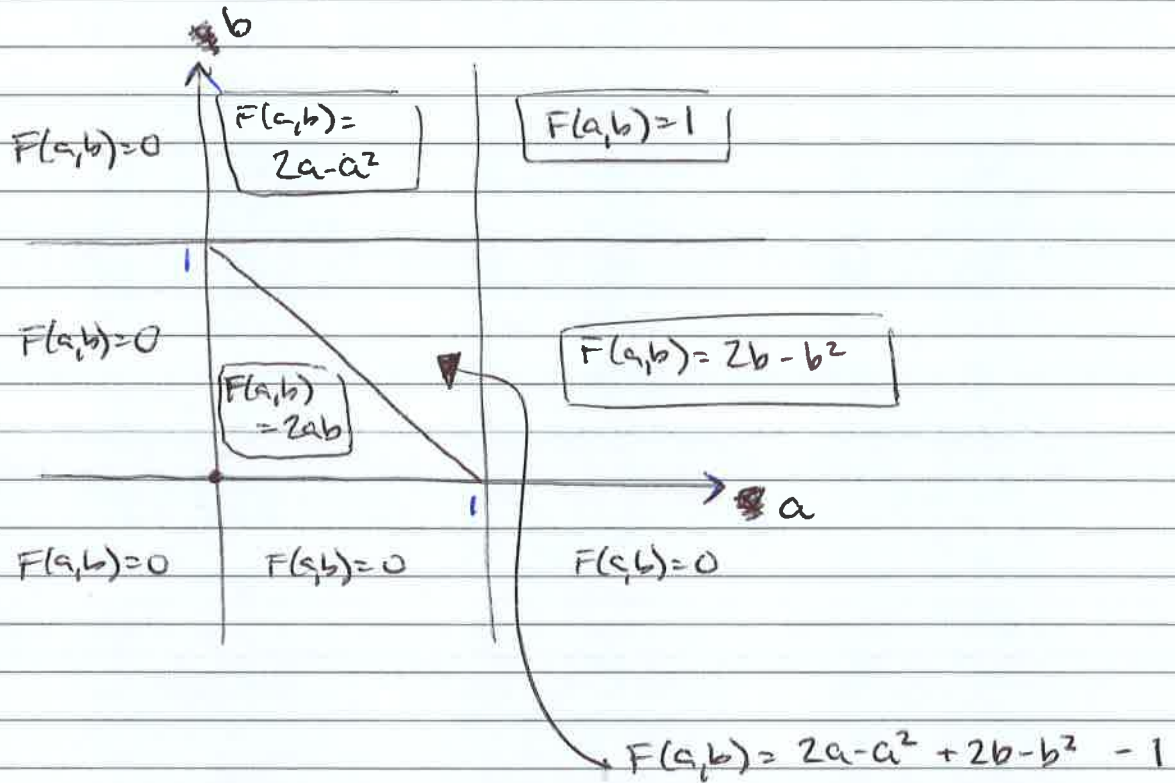 b
F(a,b)=0
F(a,b)=
2a-a²
F(a,b)=1
1
F(a,b)=0
F(a,b)
=2ab
F(a,b)= 2b-b²
1
a
F(a,b)=0
F(a,b)=0
F(a,b)=0
F(a,b)= 2a-a² +2b-b² -1